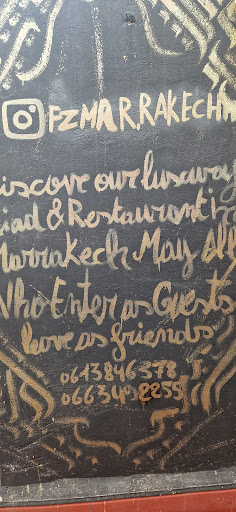 FZMARRAKECH
iscove our luxury
iad & Restaurant i
Marrakech May All
Who Enter as Guests
leave as friends
0613846378
0663492255